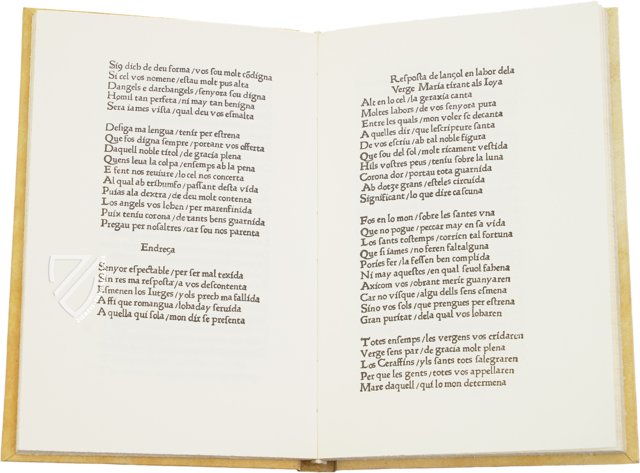 Sig dich de deu forma / vos sou molt cõdigna
Si cel vos nomene / estau mout pus alta
Dangels e darchangels / senyora sou digna
Homil tan perfeta / ni may tan benigna
Sera iames vista / qual deu vos esmalta
Desiga ma lengua / tenir per estrena
Que fos digna sempre / portant vos offerta
Daquell noble titol / de gracia plena
Quens leua la colpa / ensemps ab la pena
E fent nos reuiure / lo cel nos concerta
Al qual ab triumfo / passant desta vida
Puias ala dextra / de deu molt contenta
Los angels vos loben / per marenfinida
Puix teniu corona / de tants bens guarnida
Pregau per nosaltres / car sou nos parenta
Endreça
Senyor espectable / per ser mal texida
Sin res ma resposta / a vos descontenta
Esmenen los Iutges / y yls prech ma fallida
Affi que romangua / lobaday seruida
A quella qui sola / mon dir se presenta
Resposta de lançol en labor dela
Verge Maria tirant als Ioya
Alt en lo cel / la geraxia canta
Moltes labors / de vos senyora pura
Entre les quals / mon voler se decanta
A quelles dir / que lescriptura santa
De vos escriu / ab tal noble figura
Que sou del sol / molt ricament vestida
Hils vostres peus / teniu sobre la luna
Corona dor / portau tota guarnida
Ab dotze grans / esteles circuida
Significant / lo que dire cascuna
Fos en lo mon / sobre les santes vna
Que no pogue / peccar may en sa vida
Los sants tostemps / corrien tal fortuna
Que si iames / no feren fal talguna
Pories fer / la fessen ben complida
Ni may aquestes / en qual seuol fahena
Axicom vos / obrant merit guanyaren
Car no visque / algu dells sens esmena
Sino vos sols / que prengues per estrena
Gran puritat / dela qual vos lobaren
Totes ensemps / les vergens vos cridaren
Verge sens par / de gracia molt plena
Los Ceraffins / yls sants tots salegraren
Per que les gents / totes vos appellaren
Mare daquell / qui lo mon determena